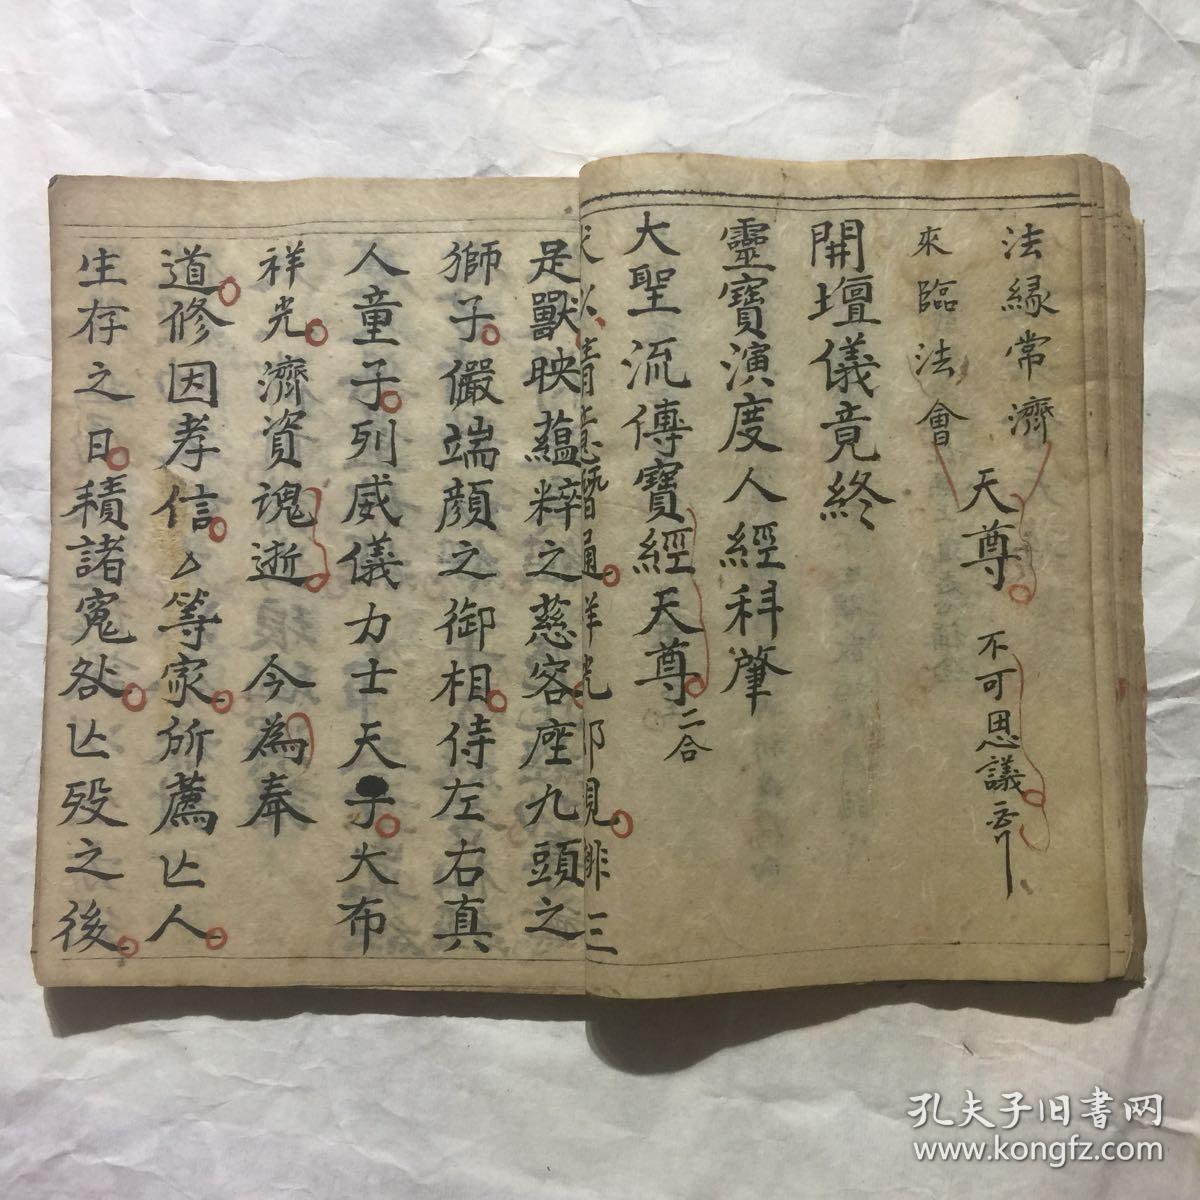 法緣常濟
來臨法會
天尊
不可思議
開壇儀竟終
靈寶演度人經科肇
大聖流傳寶經天尊二合
是獸映蘊粹之慈容座九頭之
獅子儼端顔之御相侍左右真
人童子列威儀力士天子大布
祥光濟資魂逝 今為奉
道修因孝信厶等家所薦亡人
生存之日積諸寃愆亡歿之後
孔夫子旧书网
www.kongfz.com